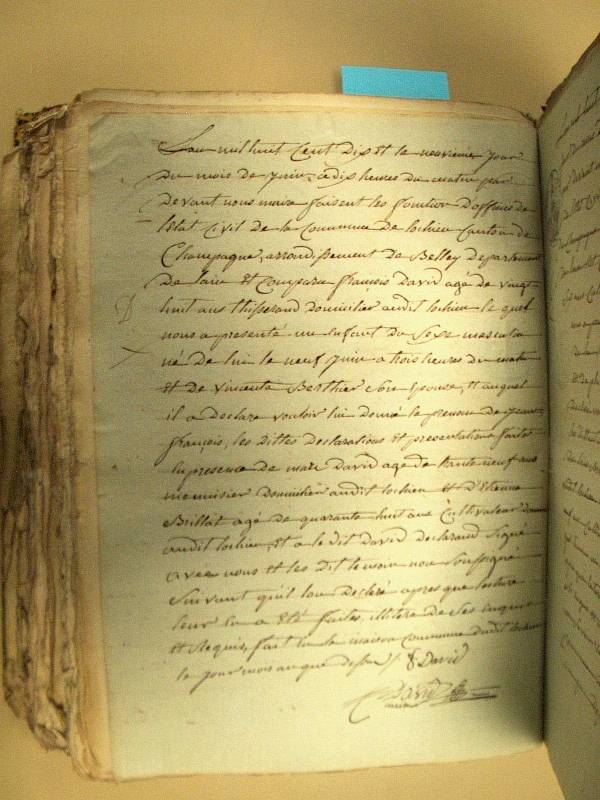 L'an mil huit Cent Dix et le neuvieme jour
Du mois de juin, a Dix heures du matin par
Devant nous maire faisent les fonction d'officier de
l'Etat Civil de la Commune de lochieu Canton de
Champagne, arrondissement de Belley Departement
De l'ain Est Comparu françois David agé de vingt
huit ans thisserand domicilier audit lochieu le quel
nous a presenté un Enfant du Sexe masculin
né De lui le neuf juin a trois heures du matin
Et de vincente Berthier Son Epouse, Et auquel
il a Declaré vouloir lui donné le prenom de
françois, les Dittes Declarations Et presentations faites
En presence de marc David agé de trante neuf ans
menuisier Domicilier audit lochieu Et D'Etienne
Brillat agé De quarante huit ans Cultivateur
audit lochieu, Et a le dit David declarand Signé
avec nous Et les dit temoin non Soussigné
Suivant qu'il l'on Declaré apres que lecture
leur En a Eté faites, illitere de Ses Enquis
Et Requis, fait En la maison Commune dudit lochieu
le jour mois an que dessus / f David
David
maire